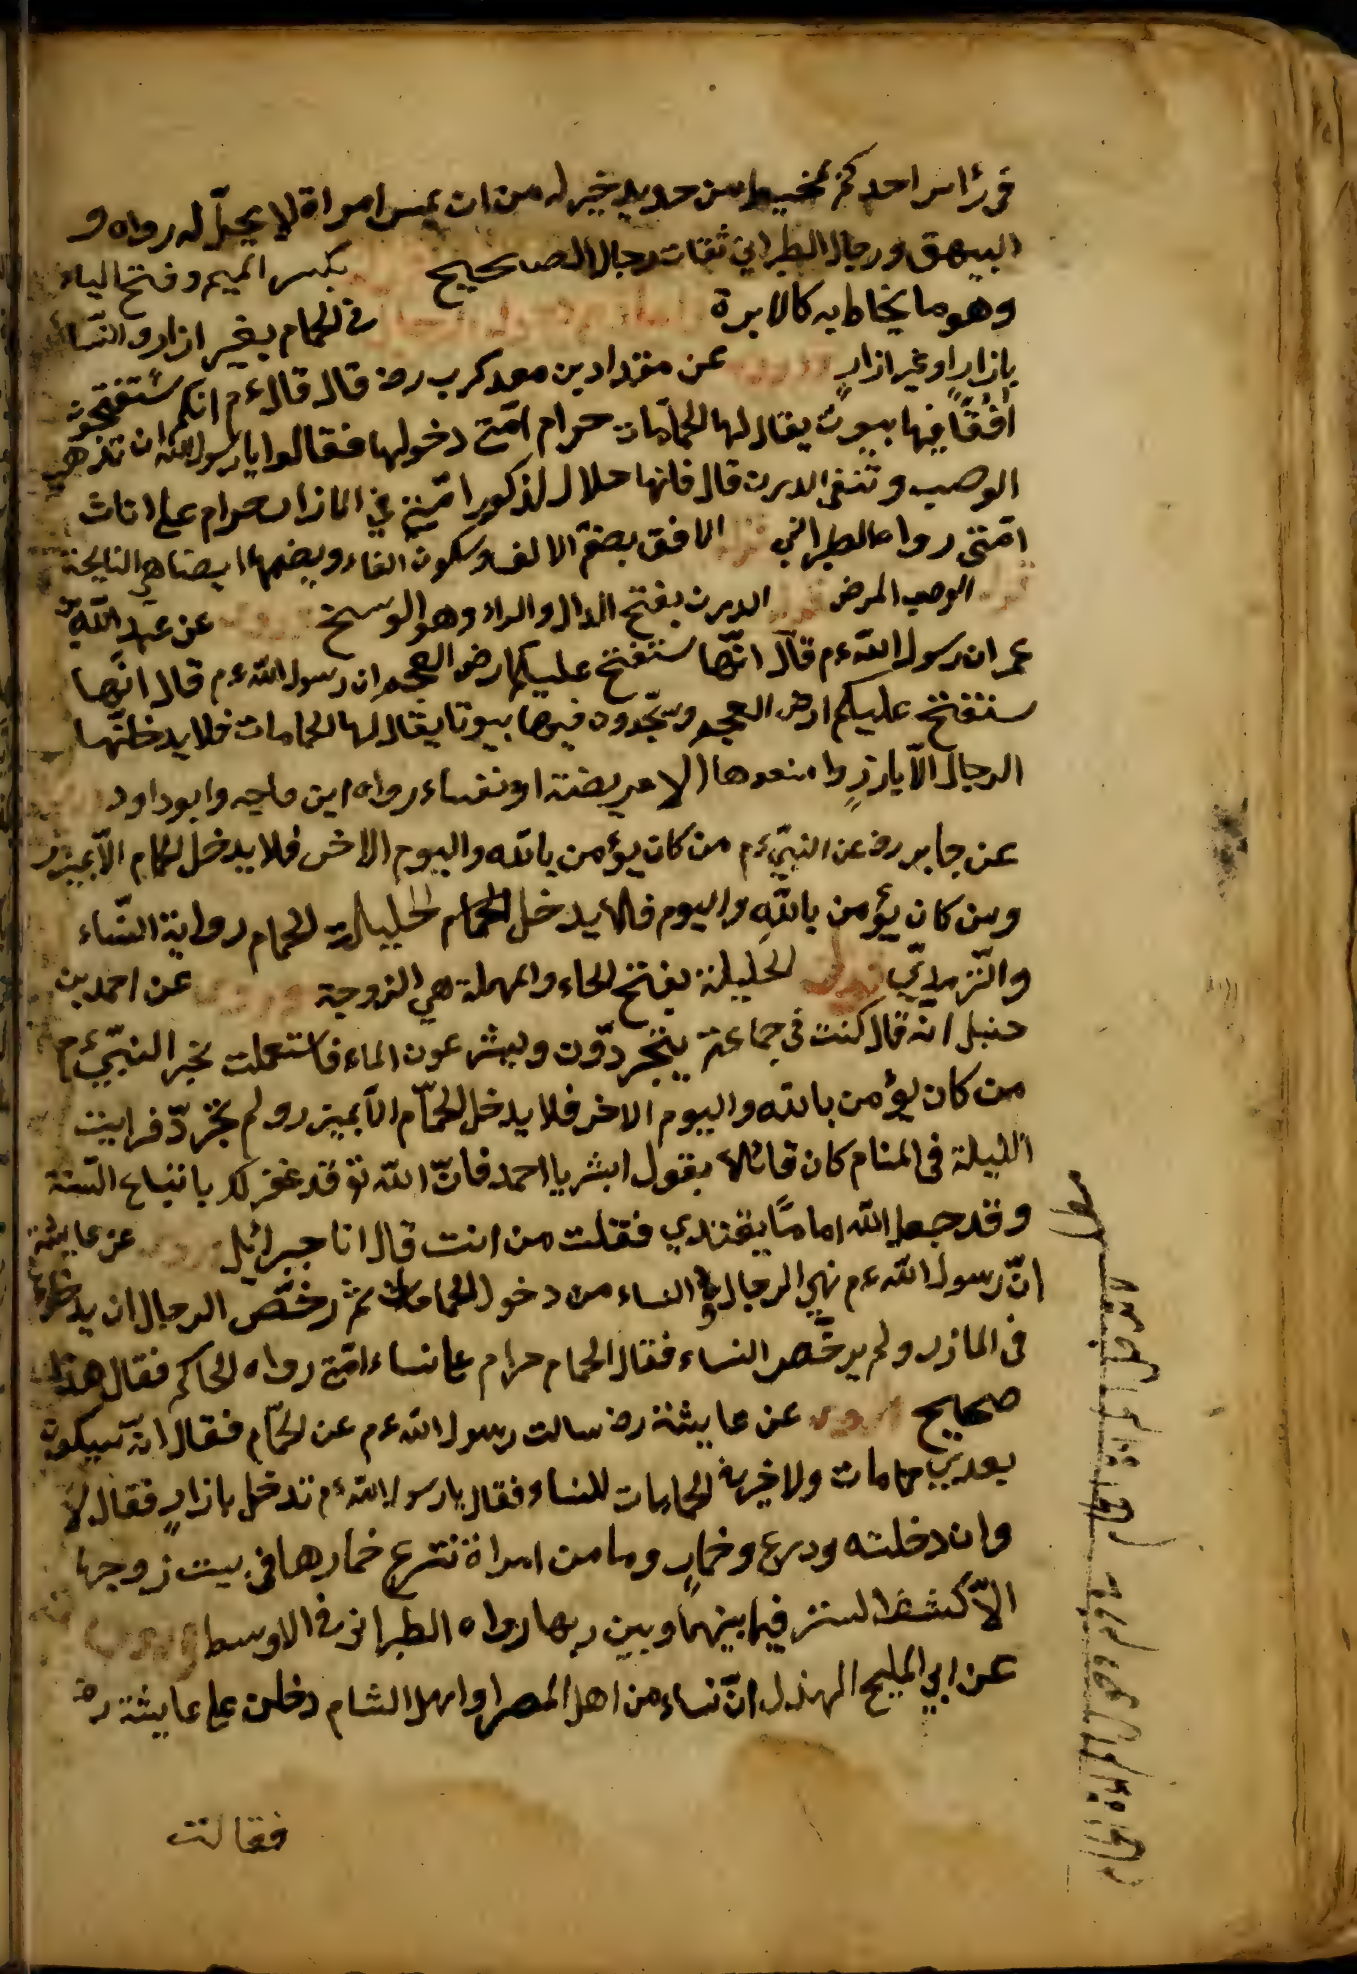 فى رأس احدكم بمخيط من حديد خير له من ان يمس امراة لا يحلّ له رواه و
البيهقى ورجال الطبرانى ثقات رجال الصحيح بكسر الميم وفتح الياء
وهو ما يخاط به كالابرة فى الحمام بغير ازار والنساء
بازارٍ او غير ازارٍ عن مقدادبن معدكرب رض قال قال ءم انكم ستفتحون
افقًا فيها بيوت يقال لها الحمّامات حرام امّتى دخولها فقالوا يا رسول الله ان تذهب
الوصب وتنفى الدرن قال فانها حلال لذكور امّتى فى المازر حرام على اناث
امّتى رواه الطبرانى الافق بضمّ الالف وسكون الفاء وبضمهما ايضا هى الناحية
الوصب المرض الدرن بفتح الدال والراء وهو الوسخ عن عبد الله بن
عمر ان رسول الله ءم قال انّها ستفتح عليكم ارض العجم ان رسول الله ءم قال انّها
ستفتح عليكم ارض العجم وستجدون فيها بيوتا يقال لها الحمامات فلا يدخلنّها
الرجال الّا بازرٍ وامنعوها الا مريضة او نفساء رواه ابن ماجه وابو داود
عن جابر رض عن النبىّ ءم من كان يؤمن بالله واليوم الاخر فلا يدخل الحمام الّا بميزر
ومن كان يؤمن بالله واليوم فلا يدخل الحمام الحليلته الحمام رواية النساء
والترمذىّ الحليلة بفتح الحاء والمهملة هى الزوجة عن احمد بن
حنبل انه قال كنت فى جماعة يتجردّون ويشرعون الماء فاستعملت بخبر النبىّ ءم
من كان يؤمن بالله واليوم الاخر فلا يدخل الحمّام الّا بميزر ولم تجرّد فرايت
الليلة فى المنام كان قائلا يقول ابشر يا احمد فانّ الله تع قد غفر لك باتباع السّنة
وقد جعل الله امامًا يقتدي فقلت من انت قال انا جبرائيل عن عايشة
انّ رسول الله ءم نهى الرجال والنساء من دخول الحمامات ثم رخّص الرجال ان يدخلوا
فى المازر ولم يرخّص النساء فقال الحمام حرام على نساء امّتى رواه الحاكم فقال هذا
صحيح عن عايشة رض سالت رسول الله ءم عن الحمّام فقال انّه سيكون
بعدى حمامات ولا خير فى الحمامات للنساء فقال يا رسول الله ءم تدخل بازارٍ فقال لا
وان دخلته ودرع وخمارٍ وما من امراة تنزع خمارها فى بيت زوجها
الّا كشف الستر فيما بينها وبين ربها رواه الطبرانى فى الاوسط
عن ابى المليح الهذل انّ نساء من اهل المصر او اهل الشام دخلن على عايشة رض
فقالت